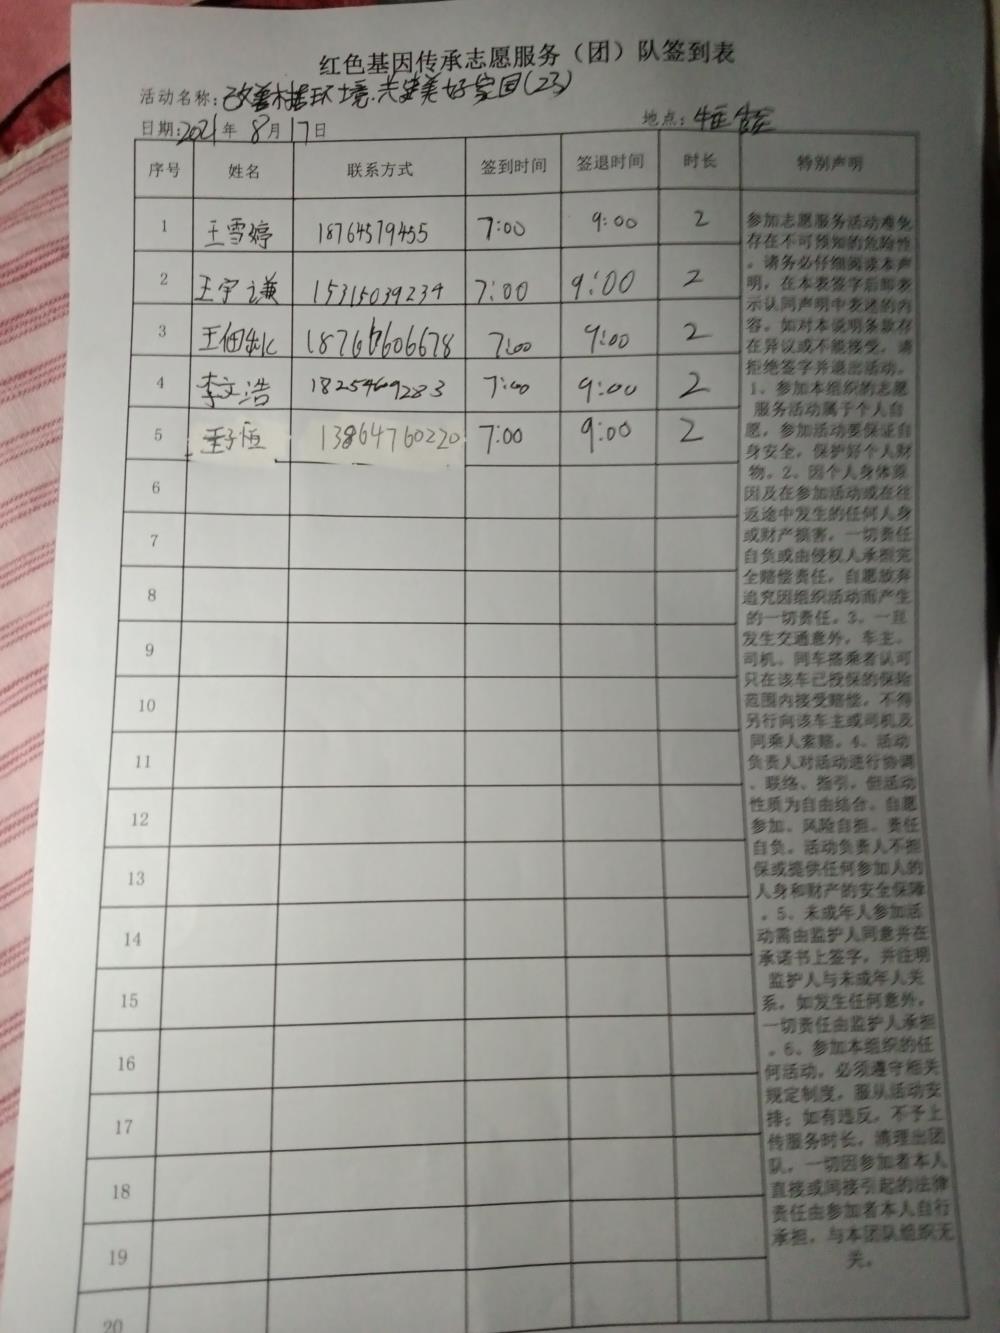 红色基因传承志愿服务（团）队签到表
活动名称：改善 环境.共建美好家园(23)
日期:2021年 8月17日 地点：
序号 姓名 联系方式 签到时间 签退时间 时长 特别声明
1 王雪婷 18764579455 7:00 9:00 2
2 王宇谦 15315039234 7:00 9:00 2
3 王佃 7:00 9:00 2
4 李文浩 18254609283 7:00 9:00 2
5 王子恒 13864760220 7:00 9:00 2
6
7
8
9
10
11
12
13
14
15
16
17
18
19
20
参加志愿服务活动难免
存在不可预知的危险性
。请务必仔细阅读本声
明，在本表签字后即表
示认同声明中表述的内
容。如对本说明条款存
在异议或不能接受，请
拒绝签字并退出活动。
1、参加本组织的志愿
服务活动属于个人自
愿，参加活动要保证自
身安全，保护好个人财
物。2、因个人身体原
因及在参加活动或在往
返途中发生的任何人身
或财产损害，一切责任
自负或由侵权人承担完
全赔偿责任，自愿放弃
追究因组织活动而产生
的一切责任。3、一旦
发生交通意外，车主、
司机、同车搭乘者认可
只在该车已投保的保险
范围内接受赔偿，不得
另行向该车主或司机及
同乘人索赔。4、活动
负责人对活动进行协调
、联络、指引，但活动
性质为自由结合、自愿
参加、风险自担、责任
自负。活动负责人不担
保或提供任何参加人的
人身和财产的安全保障
。5、未成年人参加活
动需由监护人同意并在
承诺书上签字，并注明
监护人与未成年人关
系，如发生任何意外，
一切责任由监护人承担
。6、参加本组织的任
何活动，必须遵守相关
规定制度，服从活动安
排；如有违反，不予上
传服务时长，清理出团
队，一切因参加者本人
直接或间接引起的法律
责任由参加者本人自行
承担，与本团队组织无
关。